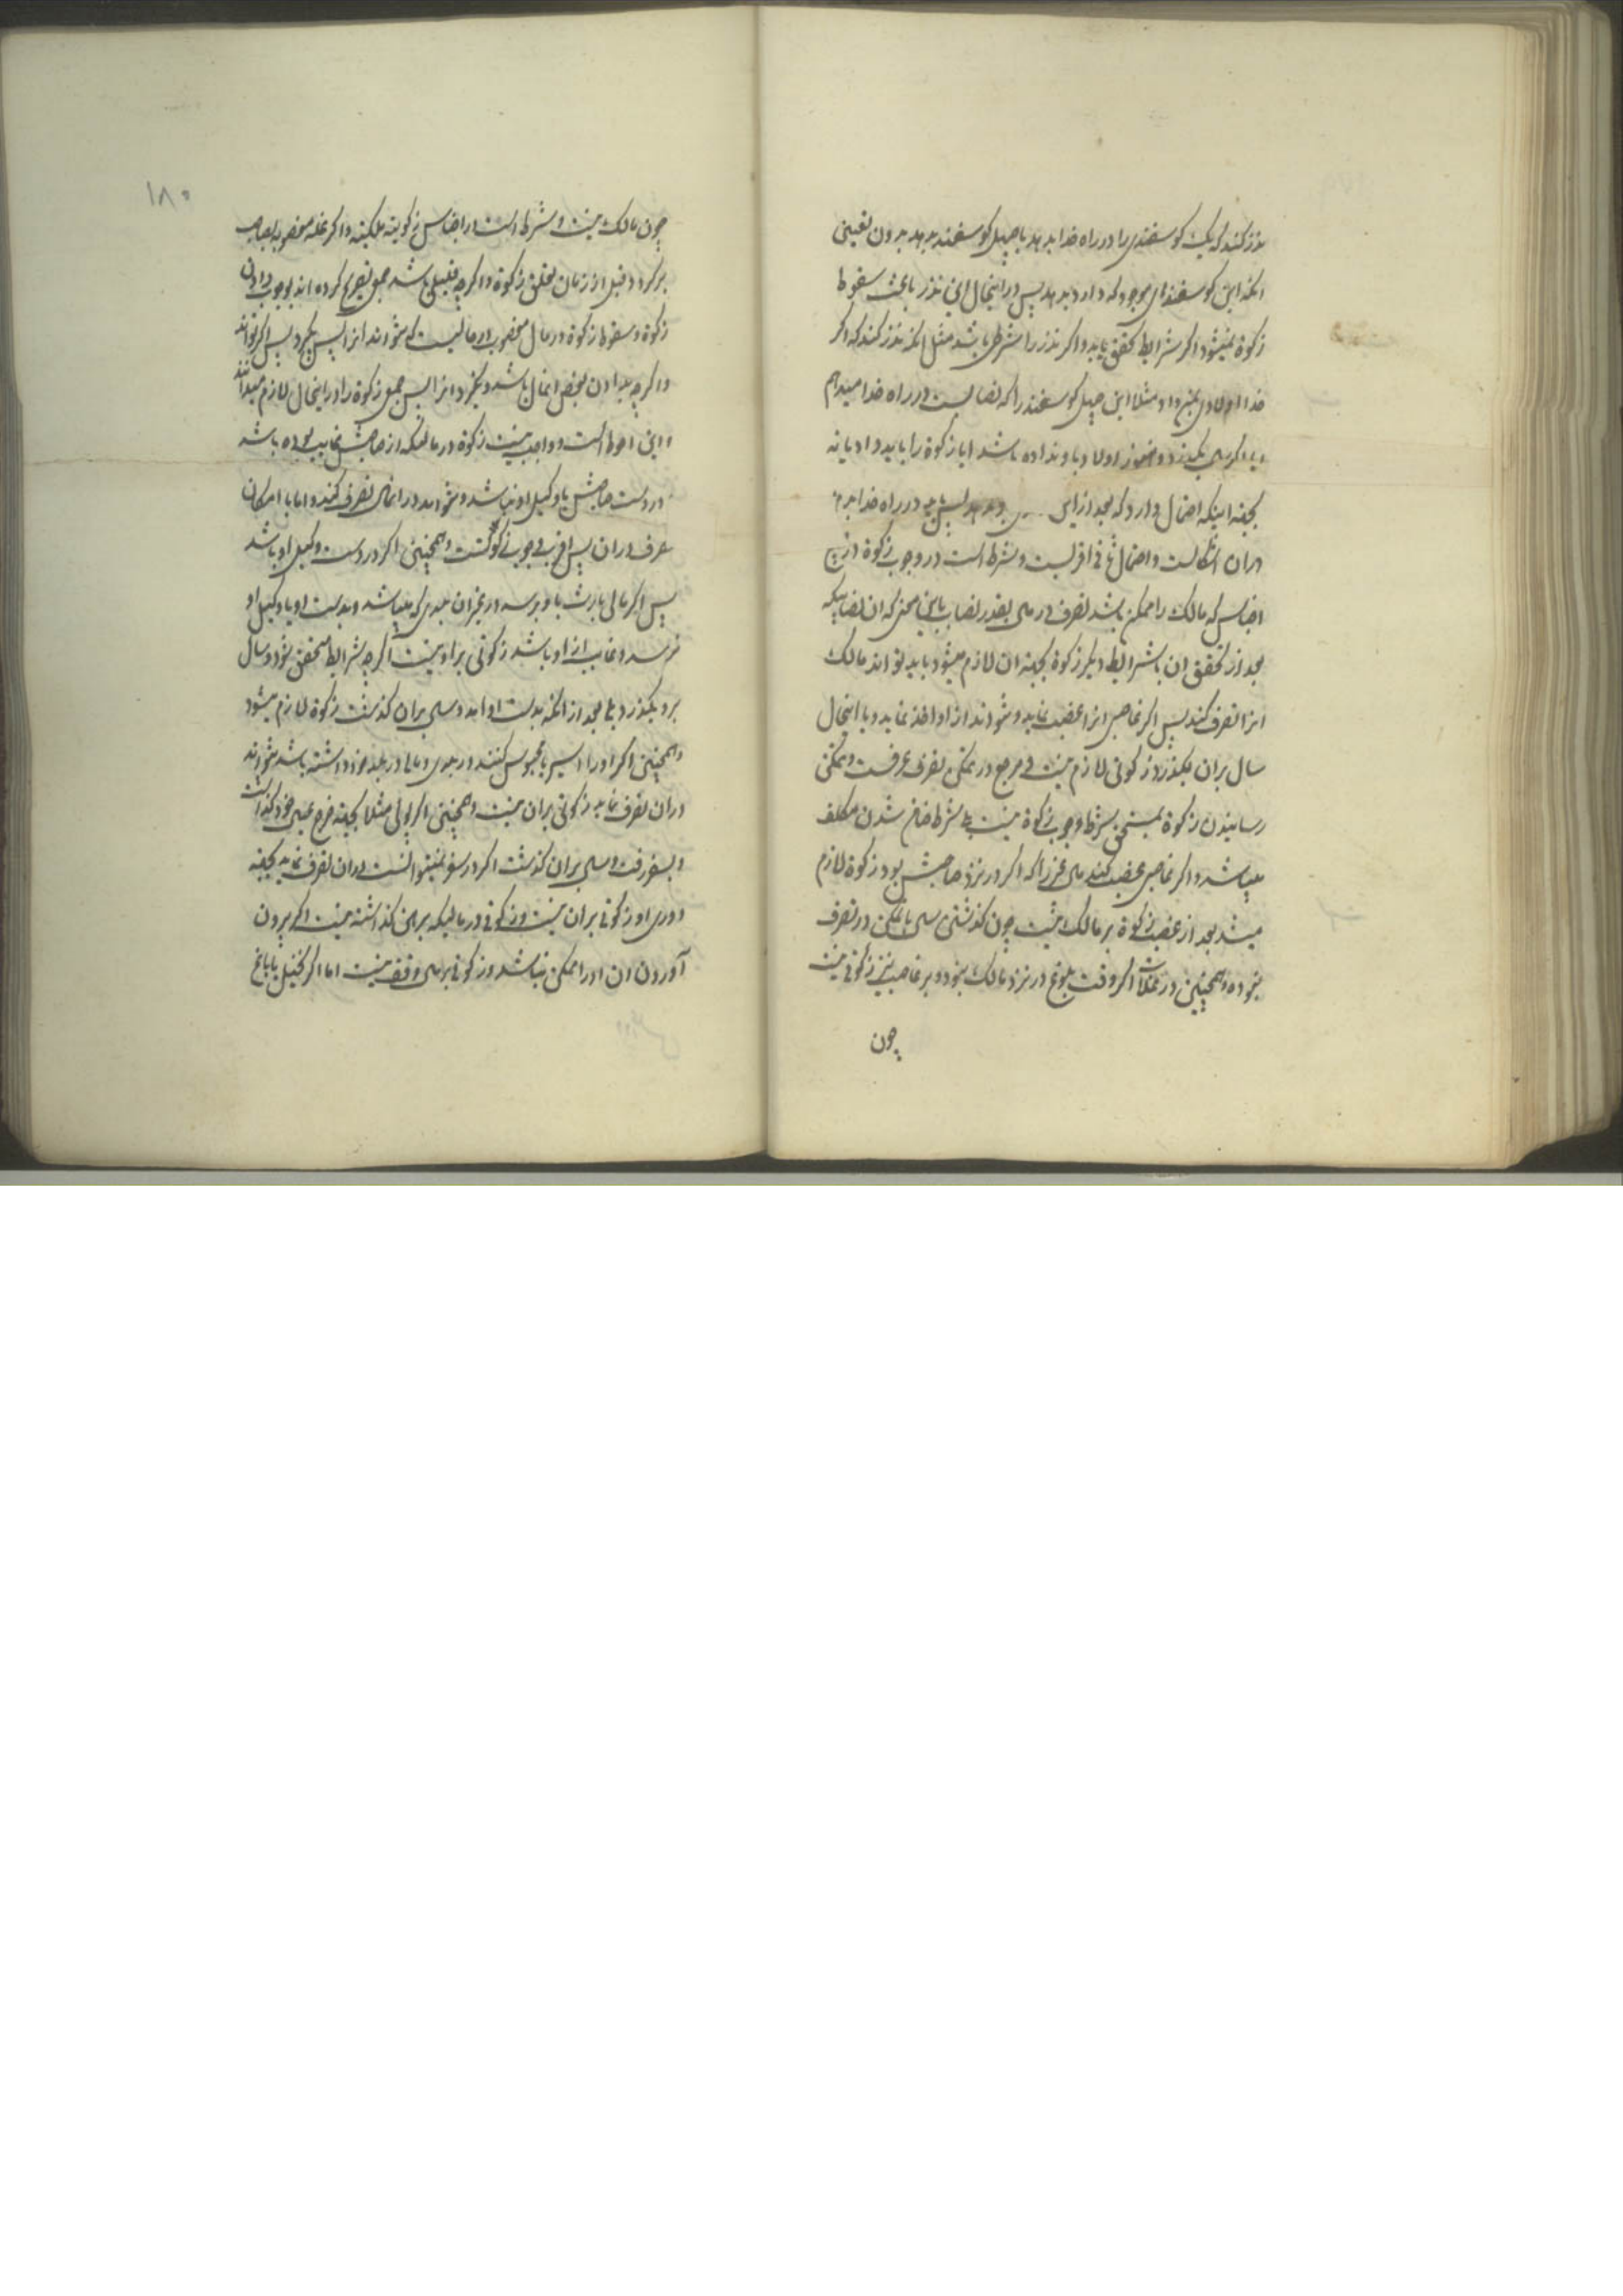 نذر کند که یک کوسفندی را در راه خدا بدهد یا چهل کوسفند بدهد بدون تعیین
آنکه این کوسفندان موجود که دارد بدهد پس در اینحال این نذر باعث سقوط
زکوة نمیشود اکر شرایط تحقق یابد و اکر نذر را شرطی باشد مثل آنکه نذر کند که اکر
خدا اولادی بمن داد مثلا این چهل کوسفند را که نصابست در راه خدا میدهم
و اکر سال بکذرد و هنوز اولاد باو نداده باشد ایا زکوة را باید داد یا نه
بجهة اینکه احتمال دارد که بعد از این بدهد پس باید در راه خدا بدهد
در ان اشکالست و احتمال ثانی اقربست و شرط است در وجوب زکوة در جمیع
اجناس که مالک را ممکن باشد تصرف در مال بقدر نصاب باین معنی که ان نصابیکه
بعد از تحقق ان با شرایط دیکر زکوة بجهة ان لازم میشود باید تواند مالک
انرا تصرف کند پس اکر غاصبی انرا غصب نماید و نتواند از او اخذ نماید و با اینحال
سال بران بکذرد زکوتی لازم نیست و مرجع در تمکن تصرف عرفست و تمکن
رسانیدن زکوة بمستحق شرط وجوب زکوة نیست بلکه شرط ضامن شدن مکلف
میباشد و اکر غاصبی غصب کند مالی را که اکر در نزد صاحبش بود زکوة لازم
میشد بعد از غصب زکوة بر مالک نیست چون کذشتن سال با تمکن در تصرف
نبوده و همچنین در غلات اکر وقت بلوغ در نزد مالک نبود و بر غاصب نیز زکوتی نیست
چون
١٨٠
چون مالک نیست و شرط است در اجناس زکویه ملکیت و اکر غله مغصوبه بصاحب
برکردد قبل از زمان تعلق زکوة و اکر چه قلیلی باشد جمعی تصریح کرده اند بوجوب دادن
زکوة و سقوط زکوة در مال مغصوب در مالیست که نتواند انرا پس بکیرد پس اکر تواند
و اکر چه بدادن بعض انمال باشد و نکیرد انرا پس جمعی زکوة را در اینحال لازم میدانند
و این احوط است و واجب نیست زکوة در مالیکه از صاحبش غایب بوده باشد
و در دست صاحبش یا وکیل او نباشد و نتواند در انمال تصرف کند و اما با امکان
تصرف در ان پس اقرب وجوب زکوتست و همچنین اکر در دست وکیل او باشد
پس اکر مالی بارث باو برسد در غیر ان بلدی که میباشد و بدست او یا وکیل او
نرسد و غایب از او باشد زکوتی بر او نیست اکر چه شرایط متحقق شود و سال
برو بکذرد بلی بعد از آنکه بدست او امد و سال بران کذشت زکوة لازم میشود
و همچنین اکر او را اسیر یا محبوس کنند در بلدی و مالی در بلد خود داشته باشد نتواند
در ان تصرف نماید زکوتی بران نیست و همچنین اکر پولی مثلا بجهة خرج عیال خود کذاشت
و بسفر رفت و سال بران کذشت اکر در سفر نمیتوانست دران تصرف نماید بجهة
دوری او زکوتی بران نیست و زکوتی در مالیکه برهن کذاشته نیست اکر بیرون
آوردن ان او را ممکن نباشد و زکوتی بر مال وقف نیست اما اکر نخیل یا باغ